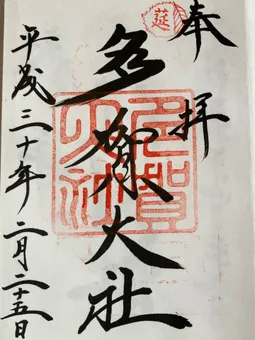 奉拝
莚
多賀大社
多賀大社
平成三十年二月二十五日